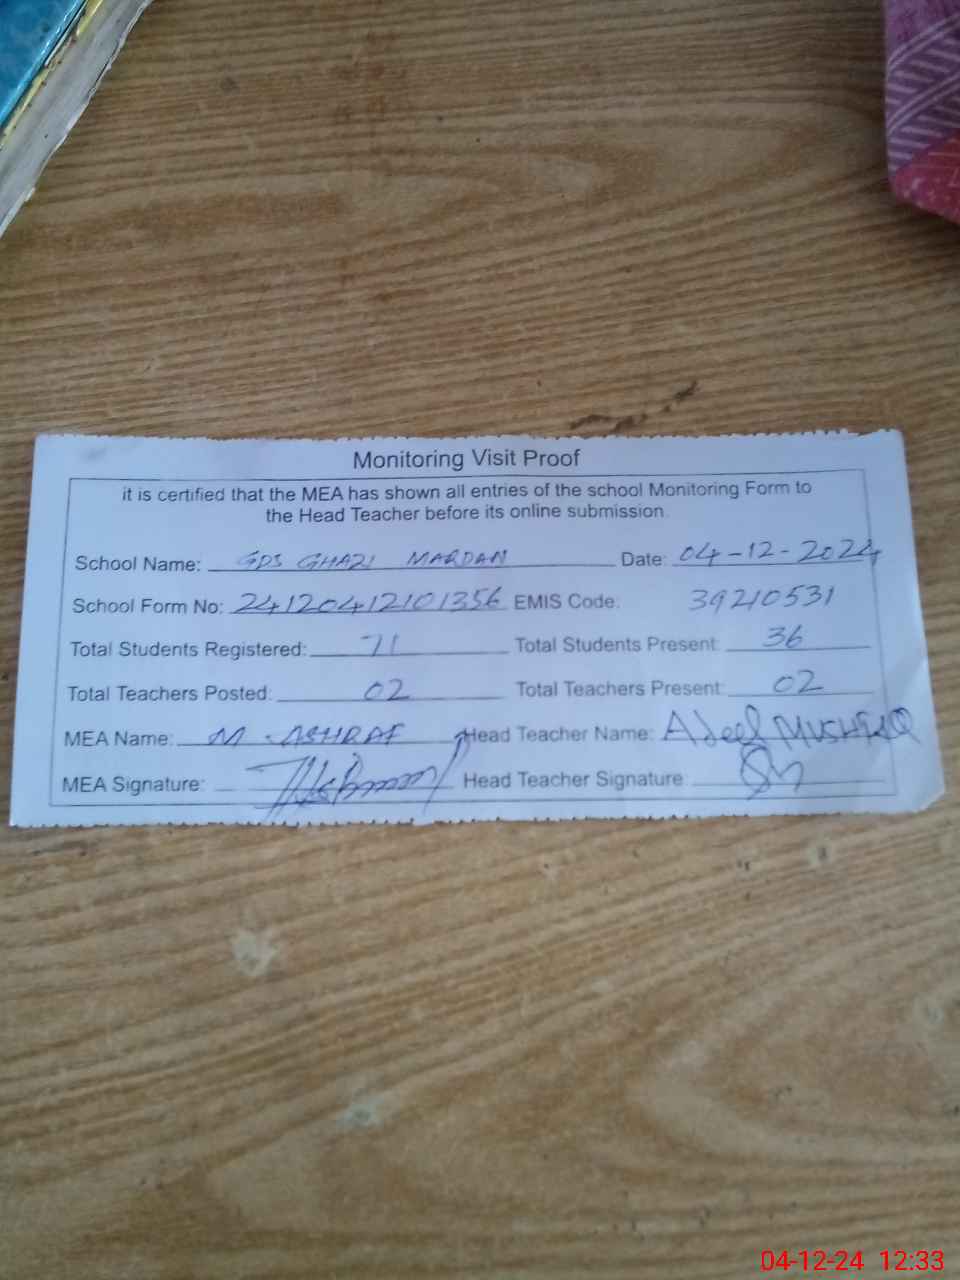 Monitoring Visit Proof
it is certified that the MEA has shown all entries of the school Monitoring Form to
the Head Teacher before its online submission.
School Name: GPS GHAZI MARDAN Date: 04-12-2024
School Form No: 24120412101356 EMIS Code: 39210531
Total Students Registered: 71 Total Students Present: 36
Total Teachers Posted: 02 Total Teachers Present: 02
MEA Name: M. ASHRAF Head Teacher Name: Adeel MUSHTAQ
MEA Signature: Head Teacher Signature
04-12-24 12:33